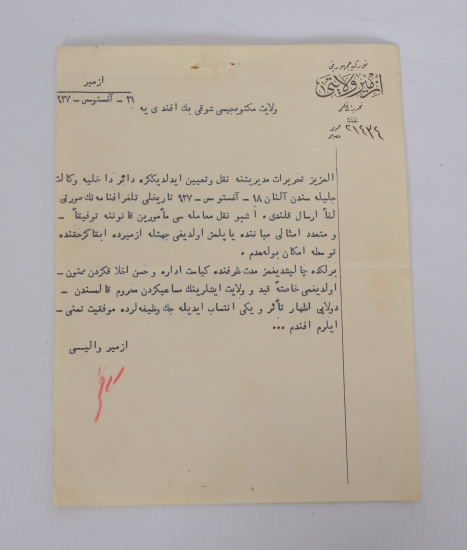 تورکیه جمهوریتی
ازمیر ولایتی
تحریرات قلمی
عدد
عمومی ٢١٤٣٤
خصوصی
ازمیر
٢٦ - آغستوس - ٩٢٧
ولایت مکتوبجیسی شوقی بك افندی یه
العزیز تحریرات مدیریتنه نقل و تعیین ایدلدیککزه دائر داخلیه وکالت
جلیله سندن آلنان ١٨ - آغستوس - ٩٢٧ تاریخلی تلغرافنامه نك صورتی
لفاً ارسال قلندی. اشبو نقل معامله سی مأمورین قانوننه توفیقاً -
و متعدد امثالی میاننده یاپلمش اولدیغی جهتله ازمیرده ابقاکز حقنده
توسطه امکان بوله مدم.
برلکده چالیشدیغمز مدت ظرفنده کیاست اداره و حسن اخلاقکزدن ممنون -
اولدیغمی خاصتهً قید و ولایت ایشلرینك ساعیکزدن محروم قالمسندن -
دولایی اظهار تأثر و یکی انتساب ایدیله جك وظیفه لرده موفقیت تمنی -
ایلرم افندم ...
ازمیر والیسی